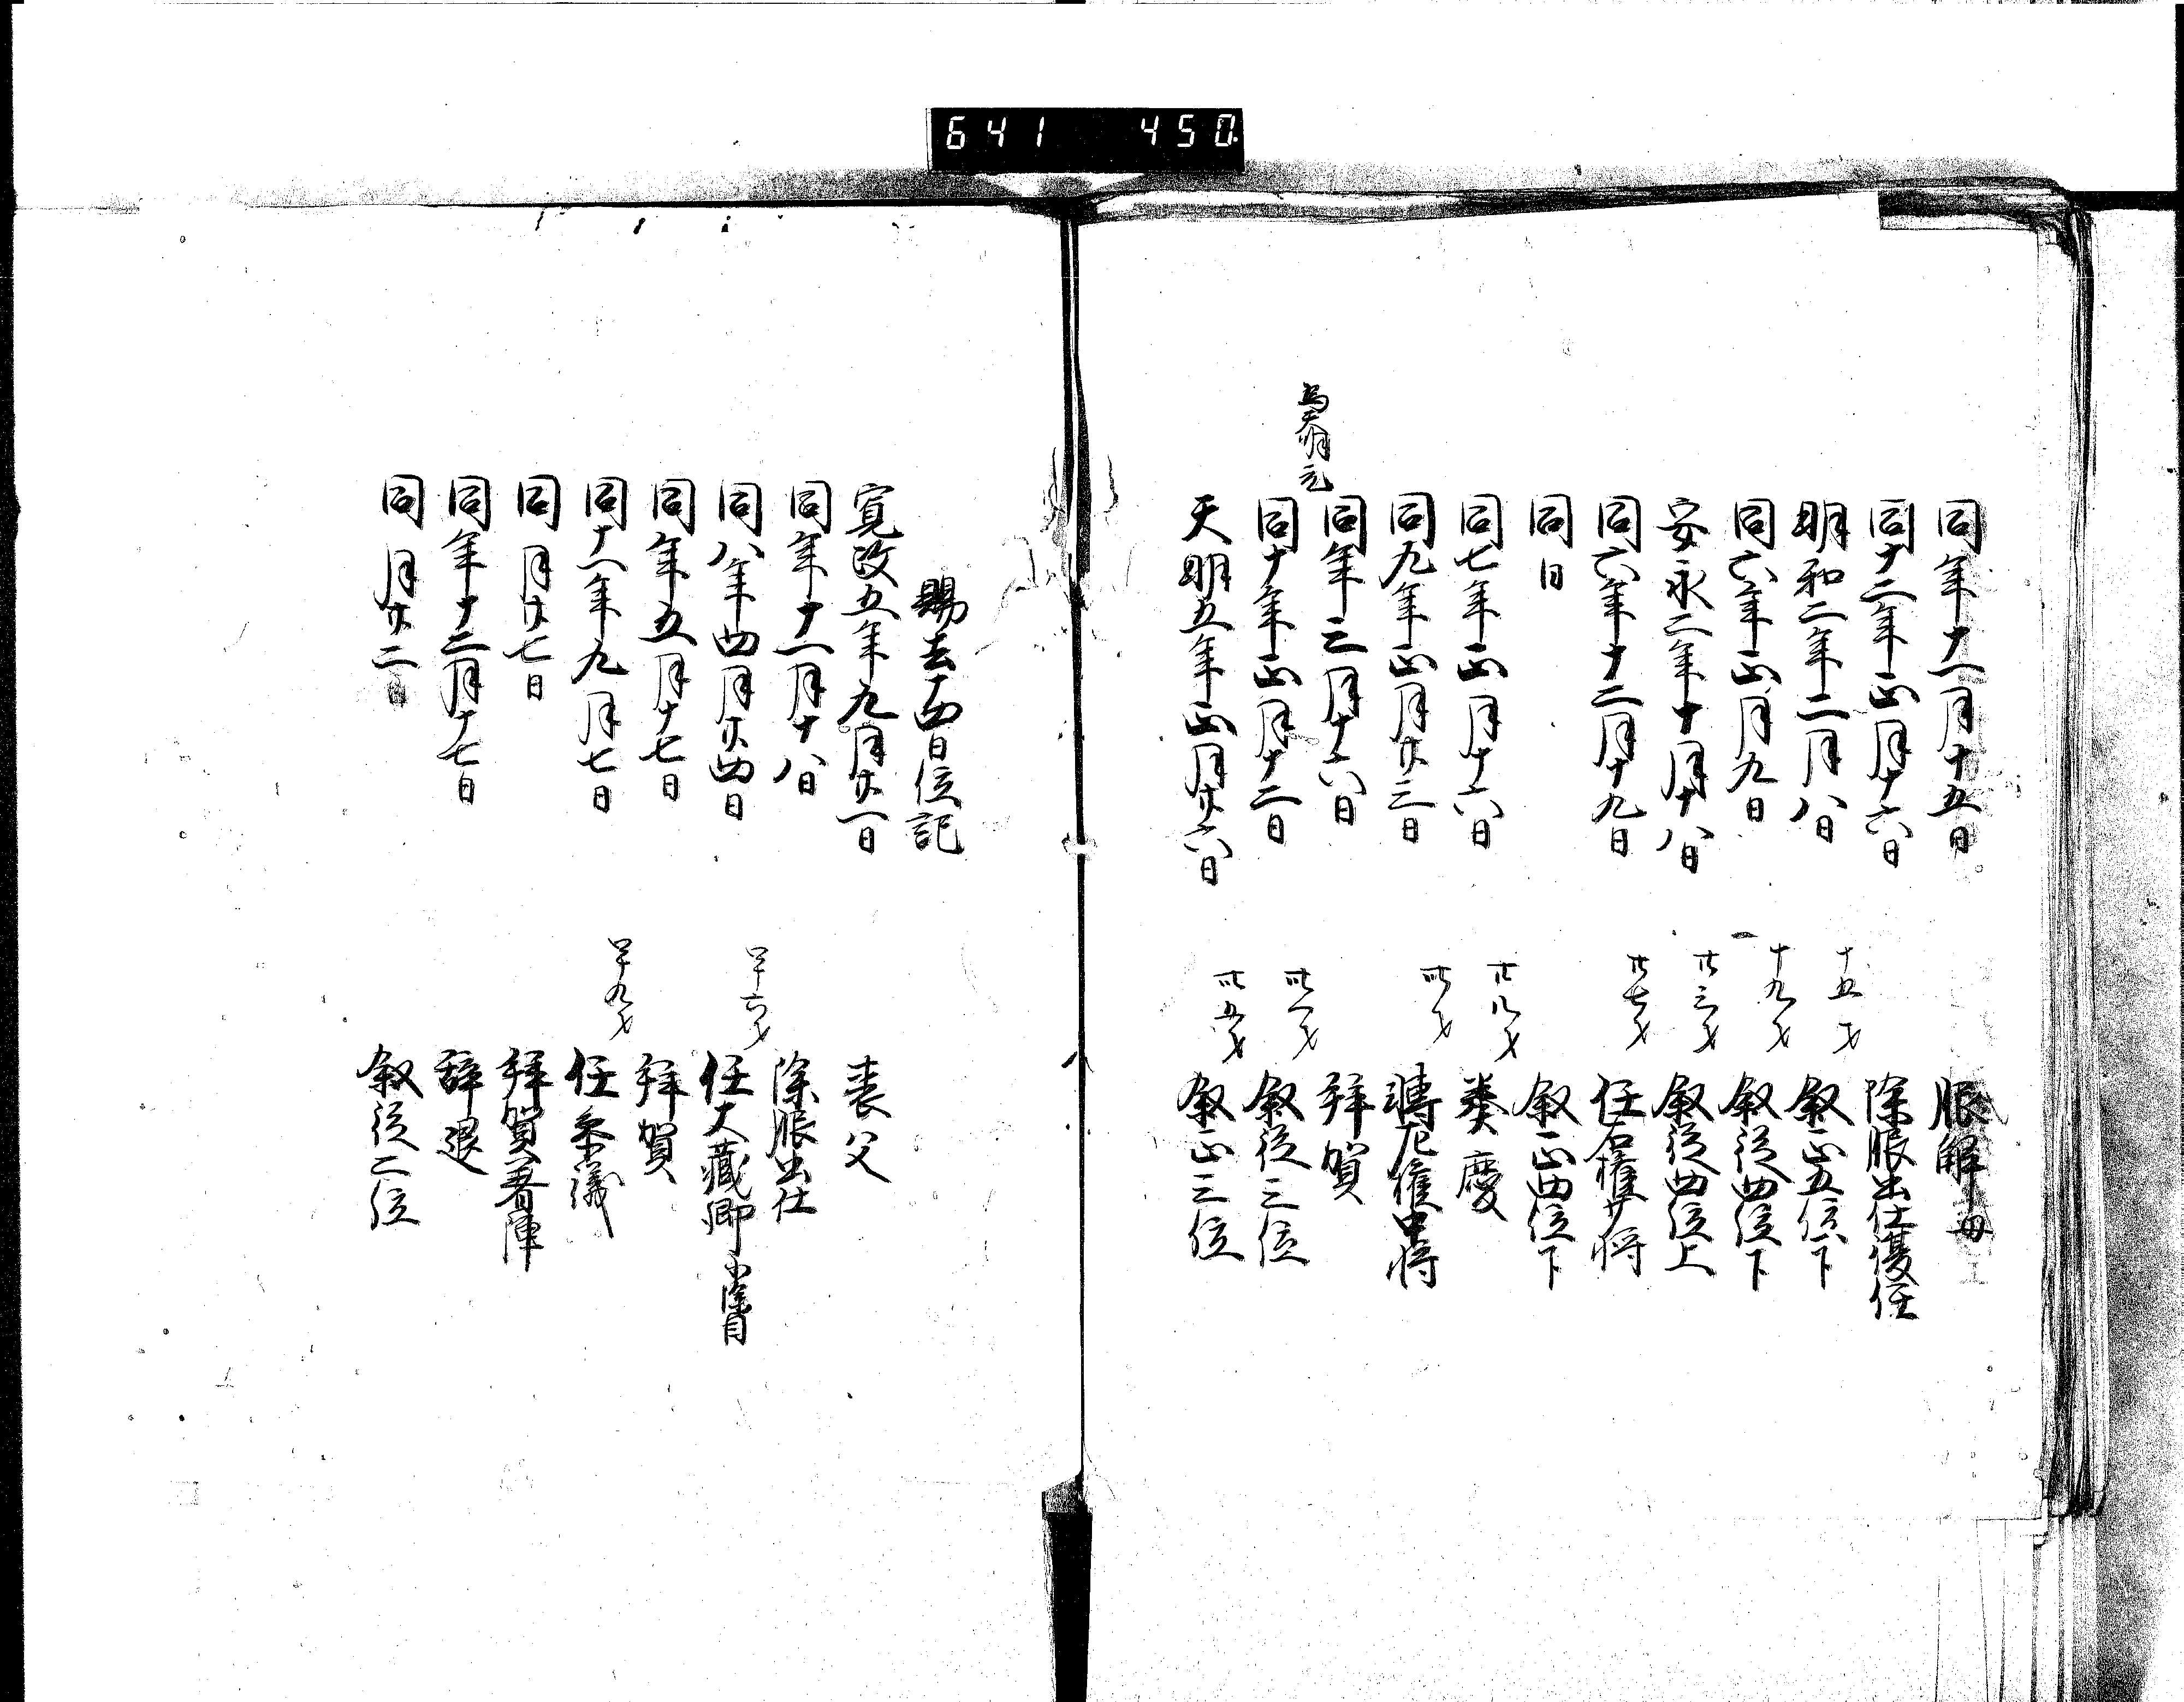 641 450
同年十一月十五日 服解 母
同十二年正月十六日 除服出仕復任
明和二年二月八日 十五才 叙正五位下
同六年正月九日 十九才 叙従四位下
安永二年十月十八日 廿三才 叙従四位上
同六年十二月十九日 廿七才 任右権少将
同日 叙正四位下
同七年正月十六日 廿八才 奏慶
同九年正月廿三日 卅才 転左権中将
同年三月十六日 拝賀
為天明元
同十年正月十二日 卅一才 叙従三位
天明五年正月廿六日 卅五才 叙正三位
賜去十四日位記
寛政五年九月廿一日 喪父
同年十一月十八日 除服出仕
同八年四月廿四日 四十六才 任大蔵卿 小除目
同年五月十七日 拝賀
同十一年九月七日 四十九才 任参議
同月廿七日 拝賀著陣
同年十二月十七日 辞退
同月廿二日 叙従二位